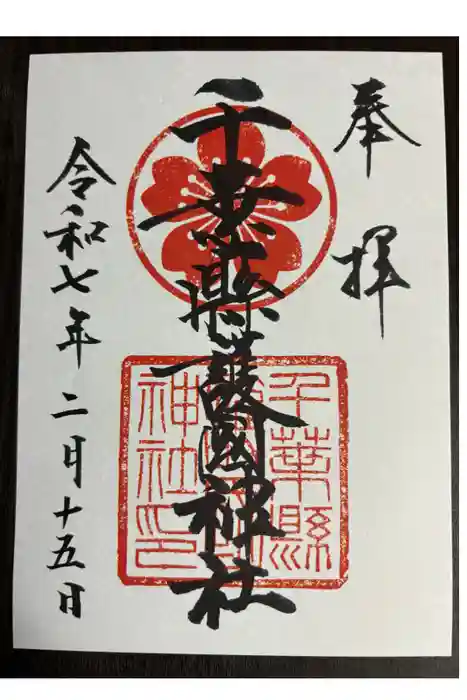 奉拝
千葉縣護國神社
千葉縣
神社印
令和七年二月十五日